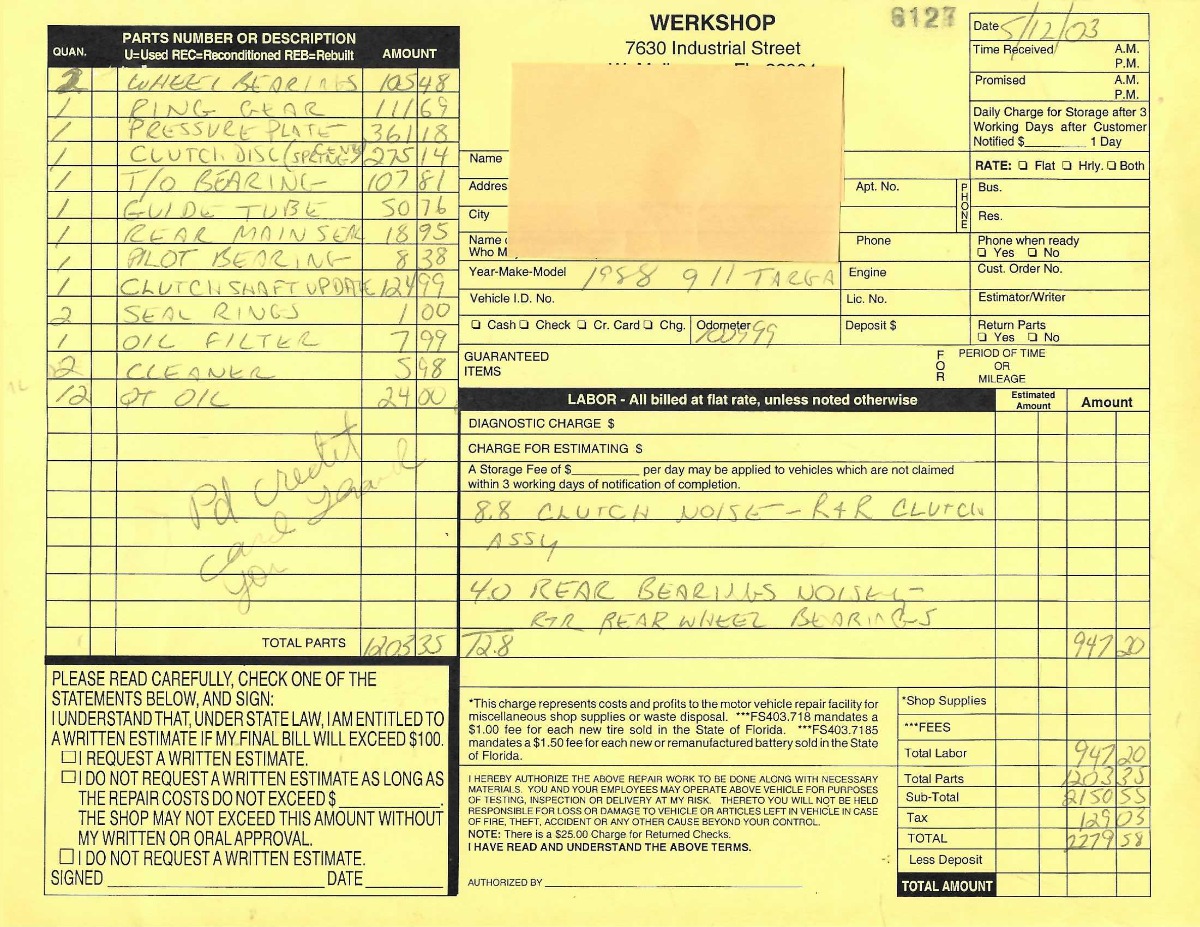 WERKSHOP
7630 Industrial Street
6127
Date 5/12/03
Time Received A.M.
P.M.
Promised A.M.
P.M.
Daily Charge for Storage after 3
Working Days after Customer
Notified $ 1 Day
RATE: ❏ Flat ❏ Hrly. ❏ Both
QUAN. PARTS NUMBER OR DESCRIPTION AMOUNT
U=Used REC=Reconditioned REB=Rebuilt
2 WHEEL BEARINGS 105 48
1 RING GEAR 111 69
1 PRESSURE PLATE 361 18
1 CLUTCH DISC (SPRING CENTER) 275 14
1 T/O BEARING 107 81
1 GUIDE TUBE 50 76
1 REAR MAIN SEAL 18 95
1 PILOT BEARING 8 38
1 CLUTCH SHAFT UPDATE 124 99
2 SEAL RINGS 1 00
1 OIL FILTER 7 99
2 CLEANER 5 98
12 QT OIL 24 00
Pd credit
card
Thank
you
TOTAL PARTS 1203 35
Name
Addres
City
Name
Who M
Apt. No.
PHONE
Bus.
Res.
Phone
Phone when ready
❏ Yes ❏ No
Year-Make-Model 1988 911 TARGA
Engine
Cust. Order No.
Vehicle I.D. No.
Lic. No.
Estimator/Writer
❏ Cash ❏ Check ❏ Cr. Card ❏ Chg.
Odometer 100999
Deposit $
Return Parts
❏ Yes ❏ No
GUARANTEED
ITEMS
FOR
PERIOD OF TIME
OR
MILEAGE
LABOR - All billed at flat rate, unless noted otherwise
Estimated
Amount
Amount
DIAGNOSTIC CHARGE $
CHARGE FOR ESTIMATING $
A Storage Fee of $ per day may be applied to vehicles which are not claimed
within 3 working days of notification of completion.
8.8 CLUTCH NOISE - R+R CLUTCH
ASSY
4.0 REAR BEARINGS NOISEY -
R+R REAR WHEEL BEARINGS
12.8 947 20
PLEASE READ CAREFULLY, CHECK ONE OF THE
STATEMENTS BELOW, AND SIGN:
I UNDERSTAND THAT, UNDER STATE LAW, I AM ENTITLED TO
A WRITTEN ESTIMATE IF MY FINAL BILL WILL EXCEED $100.
☐ I REQUEST A WRITTEN ESTIMATE.
☐ I DO NOT REQUEST A WRITTEN ESTIMATE AS LONG AS
THE REPAIR COSTS DO NOT EXCEED $
THE SHOP MAY NOT EXCEED THIS AMOUNT WITHOUT
MY WRITTEN OR ORAL APPROVAL.
☐ I DO NOT REQUEST A WRITTEN ESTIMATE.
SIGNED DATE
*This charge represents costs and profits to the motor vehicle repair facility for
miscellaneous shop supplies or waste disposal. ***FS403.718 mandates a
$1.00 fee for each new tire sold in the State of Florida. ***FS403.7185
mandates a $1.50 fee for each new or remanufactured battery sold in the State
of Florida.
I HEREBY AUTHORIZE THE ABOVE REPAIR WORK TO BE DONE ALONG WITH NECESSARY
MATERIALS. YOU AND YOUR EMPLOYEES MAY OPERATE ABOVE VEHICLE FOR PURPOSES
OF TESTING, INSPECTION OR DELIVERY AT MY RISK. THERETO YOU WILL NOT BE HELD
RESPONSIBLE FOR LOSS OR DAMAGE TO VEHICLE OR ARTICLES LEFT IN VEHICLE IN CASE
OF FIRE, THEFT, ACCIDENT OR ANY OTHER CAUSE BEYOND YOUR CONTROL.
NOTE: There is a $25.00 Charge for Returned Checks.
I HAVE READ AND UNDERSTAND THE ABOVE TERMS.
AUTHORIZED BY
*Shop Supplies
***FEES
Total Labor 947 20
Total Parts 1203 35
Sub-Total 2150 55
Tax 129 03
TOTAL 2279 58
Less Deposit
TOTAL AMOUNT